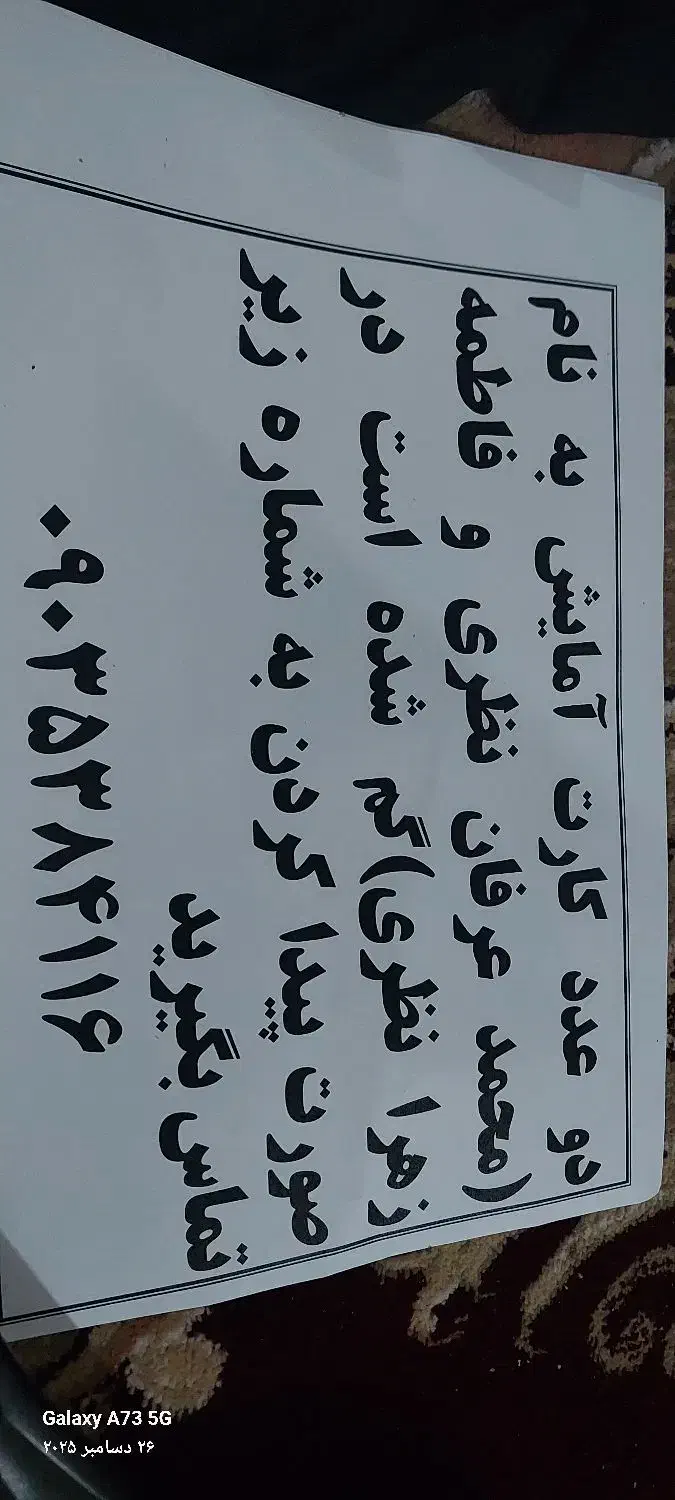 دو عدد کارت آمایش به نام
(محمد عرفان نظری و فاطمه
زهرا نظری)گم شده است در
صورت پیدا کردن به شماره زیر
تماس بگیرید
۰۹۰۳۵۳۸۴۱۱۶
Galaxy A73 5G
۲۶ دسامبر ۲۰۲۵